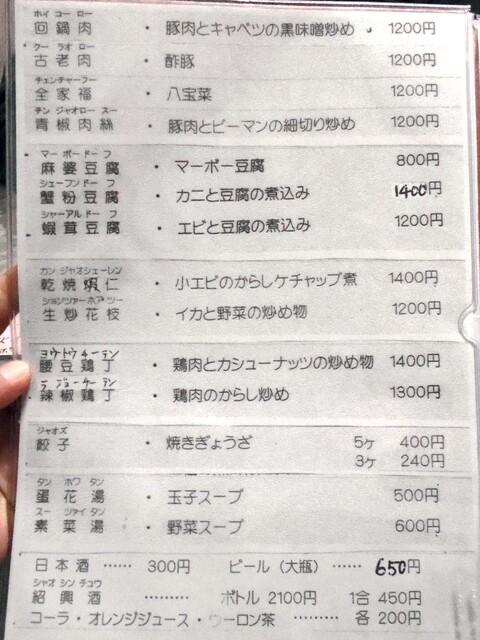 ホイ コー ロー
回鍋肉 ・ 豚肉とキャベツの黒味噌炒め 1200円
クー ラオ ロー
古老肉 ・ 酢豚 1200円
チェンチャーフー
全家福 ・ 八宝菜 1200円
チン ジャオロー スー
青椒肉絲 ・ 豚肉とピーマンの細切り炒め 1200円
マー ポー ドー フ
麻婆豆腐 ・ マーボー豆腐 800円
シェーフンドー フ
蟹粉豆腐 ・ カニと豆腐の煮込み 1400円
シャーアルドー フ
蝦茸豆腐 ・ エビと豆腐の煮込み 1200円
カン ジャオシェーレン
乾焼蝦仁 ・ 小エビのからしケチャップ煮 1400円
ションツァーホア ツー
生炒花枝 ・ イカと野菜の炒め物 1200円
ヨウトウチーテン
腰豆鶏丁 ・ 鶏肉とカシューナッツの炒め物 1400円
ラ ジョーチーテン
辣椒鶏丁 ・ 鶏肉のからし炒め 1300円
ジャオズ
餃子 ・ 焼きぎょうざ 5ヶ 400円
3ヶ 240円
タン ホワ タン
蛋花湯 ・ 玉子スープ 500円
スー ツァイ タン
素菜湯 ・ 野菜スープ 600円
日本酒 …… 300円 ビール（大瓶）…… 650円
シャオ シン チュウ
紹興酒 ……… ボトル 2100円 1合 450円
コーラ・オレンジジュース・ウーロン茶 …… 各 200円